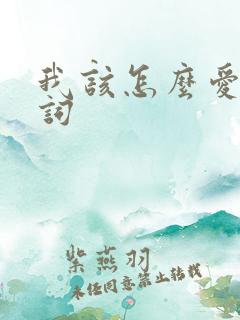 我該怎麼愛
詞
紫燕羽
未经同意禁止转载